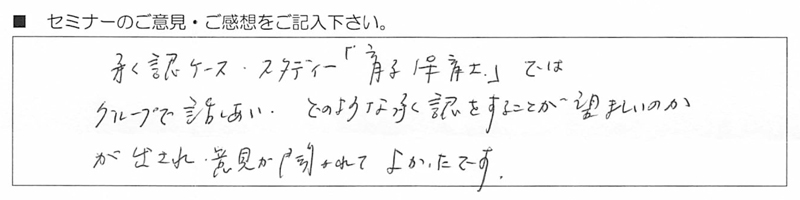 ■ セミナーのご意見・ご感想をご記入下さい。
承く認ケース・スタディー「育子保育士」では
グループで話しあい、どのような承く認をすることが望ましいのか
が出され、意見が聞かれてよかったです。